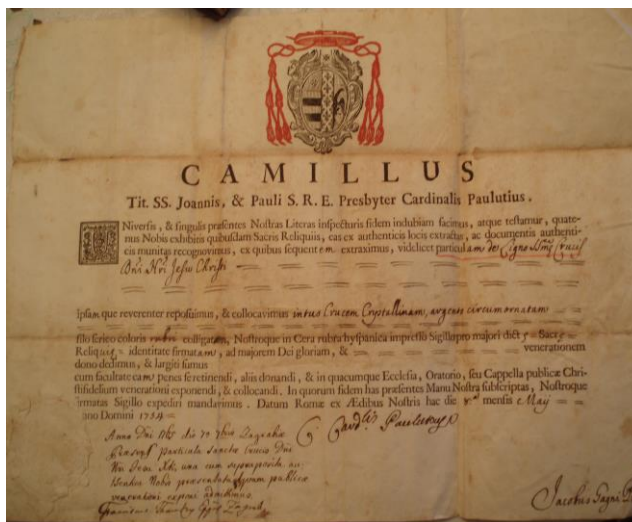 CAMILLUS
Tit. SS. Joannis, & Pauli S. R. E. Presbyter Cardinalis Paulutius.
UNiversis, & singulis præsentes Nostras Literas inspecturis fidem indubiam facimus, atque testamur, quate-
nus Nobis exhibitis quibusdam Sacris Reliquiis, eas ex authenticis locis extractas, ac documentis authenti-
cis munitas recognovimus, ex quibus sequentem extraximus, videlicet particulam de Ligno SSmæ Crucis
Dni Nri Jesu Christi
Ipsam que reverenter reposuimus, & collocavimus intus Crucem Crystallinam, argento circumornatam
filo serico coloris rubri colligatam, Nostroque in Cera rubra hyspanica impresso Sigillo pro majori dict Sac
Reliqui identitate firmatam, ad majorem Dei gloriam, & venerationem
dono dedimus, & largiti sumus
cum facultate eam penes se retinendi, aliis donandi, & in quacumque Ecclesia, Oratorio, seu Cappella publicæ Chri-
stifidelium venerationi exponendi, & collocandi. In quorum fidem has præsentes Manu Nostra subscriptas, Nostroque
firmatas Sigillo expediri mandavimus. Datum Romæ ex Ædibus Nostris hac die mensis Maij
ano Domini 1754
C. Cardlis Paulutius
Anno Dni die 7bris Zagrabiæ
particula sanctæ Crucis Dni
Nri Jesu Xti, una cum
Nobis præsentata publicæ
venerationi exponi admittimus.
Jacobus Gagni